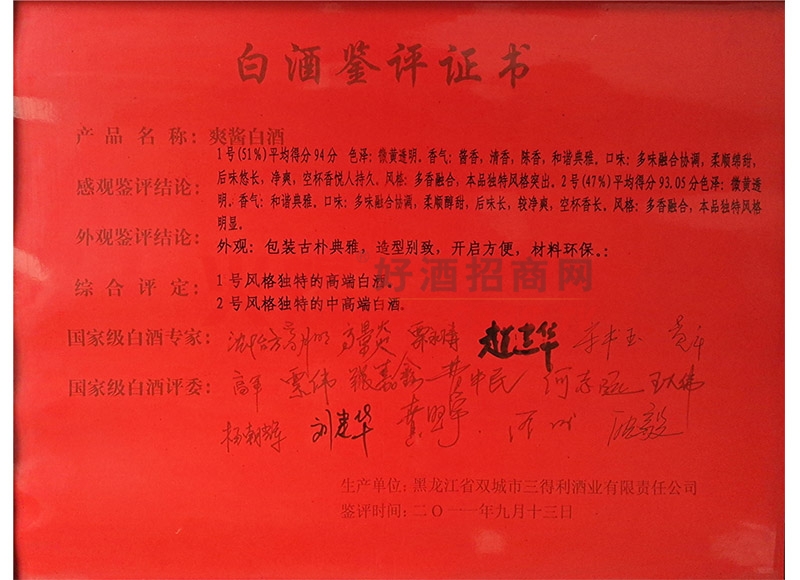 白酒鉴评证书
产品名称：爽酱白酒
感观鉴评结论：
1号(51%)平均得分94分 色泽：微黄透明。香气：酱香，清香，陈香，和谐典雅。口味：多味融合协调，柔顺绵甜，
后味悠长，净爽，空杯香悦人持久。风格：多香融合，本品独特风格突出。2号(47%)平均得分93.05分色泽：微黄透
明。香气：和谐典雅。口味：多味融合协调，柔顺醇甜，后味长，较净爽，空杯香长。风格：多香融合，本品独特风格
明显。
外观鉴评结论：
外观：包装古朴典雅，造型别致，开启方便，材料环保。；
好酒招商网
综合评定：
1号风格独特的高端白酒。
2号风格独特的中高端白酒。
国家级白酒专家： 赵建华
国家级白酒评委： 高军 栗伟 张嘉鑫 黄中民 何志远 王伟
杨朝辉 刘建华
生产单位：黑龙江省双城市三得利酒业有限责任公司
鉴评时间：二〇一一年九月十三日